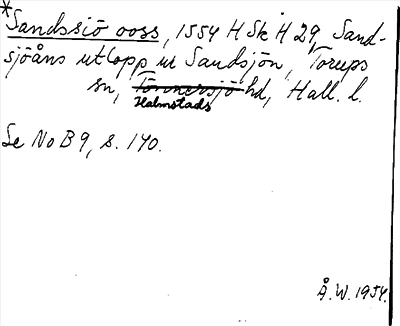 *Sandssiö ooss, 1554 HSk H 29, Sand-
sjöåns utlopp ur Sandsjön, Torups
sn, Tönnersjö hd, Hall. l.
Halmstads
Se NoB 9, s. 140.
Å.W. 1954.